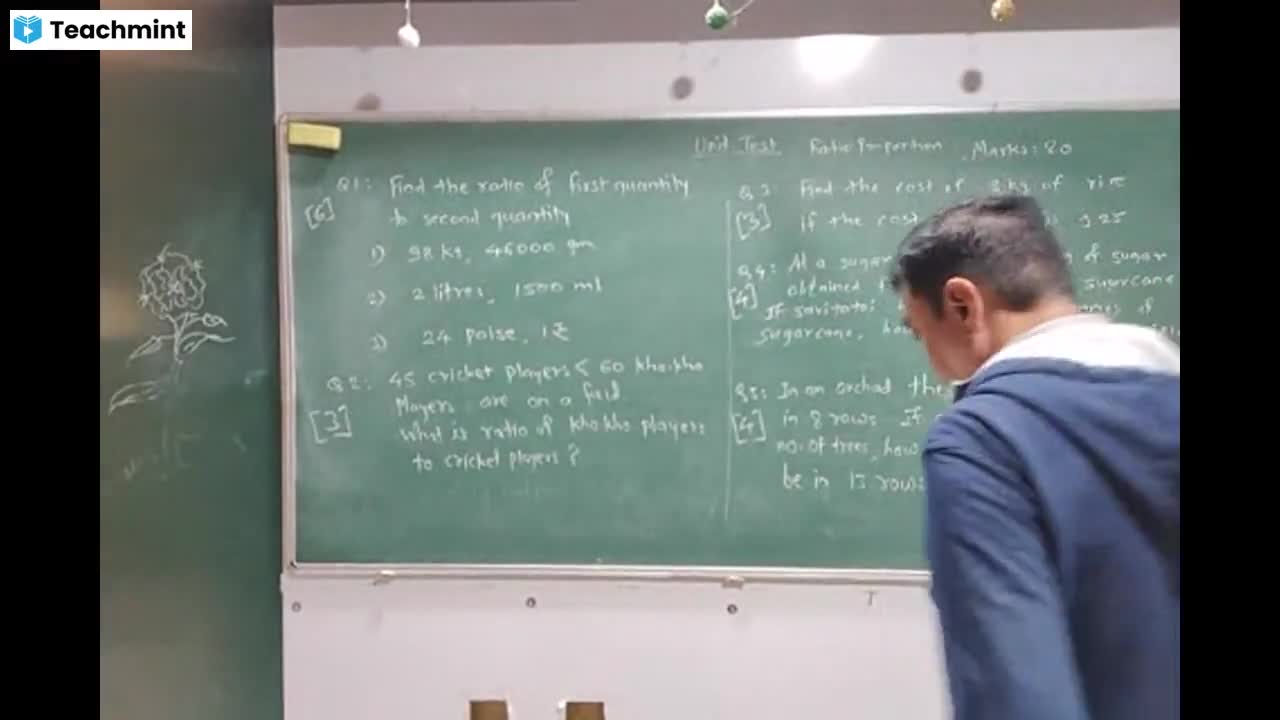 Teachmint
Unit Test Ratio Proportion Marks: 20
Q1: Find the ratio of first quantity
[6] to second quantity
1) 98 kg, 46000 gm
2) 2 litres, 1500 ml
3) 24 paise, 1₹
Q2: 45 cricket players & 60 kho-kho
Players are on a field
[3] what is ratio of kho kho players
to cricket players?
Q3: Find the cost of kg of rice
[3] if the cost is 325
Q4: At a sugar of sugar
[4] obtained sugarcane
If
sugarcane,
Q5: In an orchad the
[4] in 8 rows If
no. of trees, how
be in 15 rows